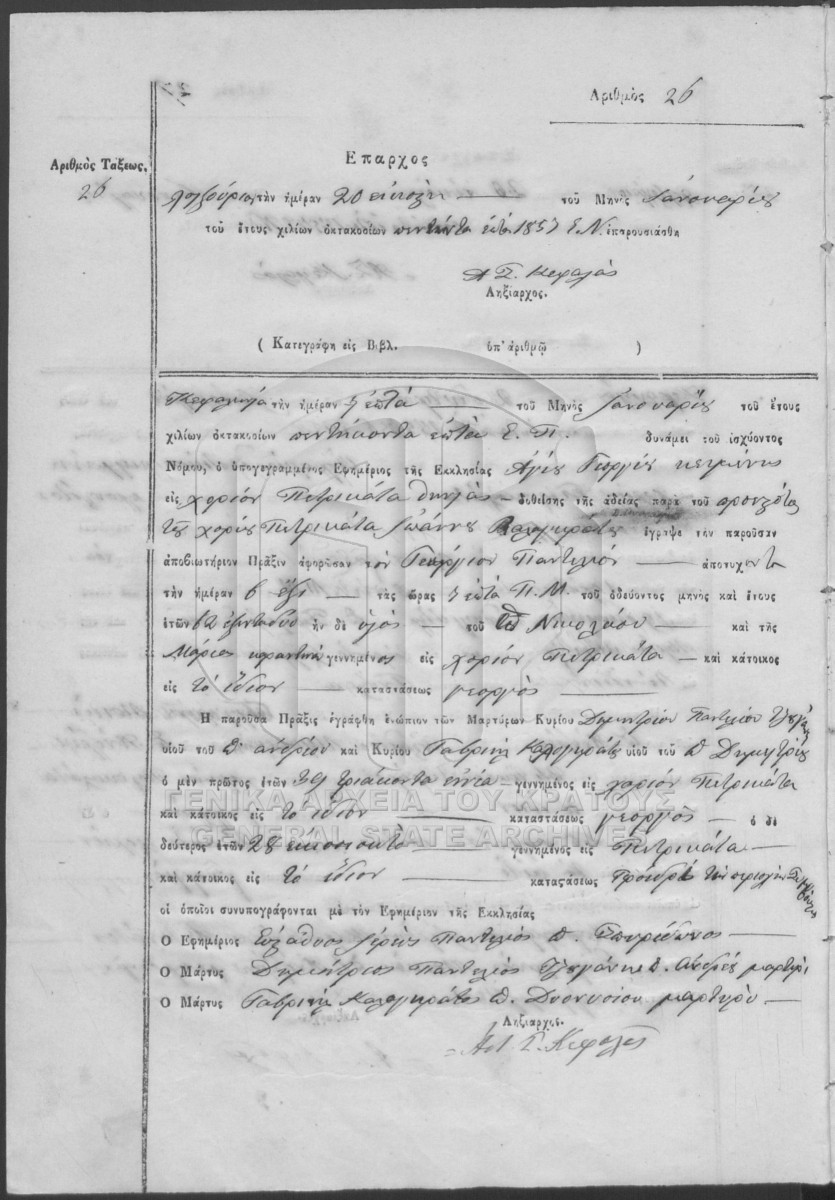 Ἀριθμὸς 26
Ἀριθμὸς Τάξεως.
26
Ἔπαρχος
Ληξούριον τὴν ἡμέραν 20 εἴκοσι τοῦ Μηνὸς Ἰανουαρίου
τοῦ ἔτους χιλίων ὀκτακοσίων πεντήντα ἑπτὰ 1857 Ε.Ν. ἐπαρουσιάσθη
Κεφαλᾶς
Ληξίαρχος.
( Κατεγράφη εἰς Βιβλ. ὑπ' ἀριθμῷ )
Κεφαλληνία τὴν ἡμέραν 7 ἑπτὰ τοῦ Μηνὸς Ἰανουαρίου τοῦ ἔτους
χιλίων ὀκτακοσίων πεντήκοντα ἑπτὰ Ε. Π. δυνάμει τοῦ ἰσχύοντος
Νόμου, ὁ ὑπογεγραμμένος Ἐφημέριος τῆς Ἐκκλησίας Ἁγίου Γεωργίου
εἰς χωρίον Πετρικάτα δοθείσης τῆς ἀδείας παρὰ τοῦ
τοῦ χωρίου Πετρικάτα Ἰωάννου ἔγραψε τὴν παροῦσαν
ἀποβιωτήριον Πρᾶξιν ἀφορῶσαν τὸν Γεώργιον Παντελιὸν ἀποτυχόντα
τὴν ἡμέραν 6 ἕξι τὰς ὥρας 7 ἑπτὰ Π.Μ. τοῦ ὁδεύοντος μηνὸς καὶ ἔτους
ἐτῶν 62 ἑξηνταδύο ἦν δὲ υἱὸς τοῦ Νικολάου καὶ τῆς
Μαρίας γεννημένος εἰς χωρίον Πετρικάτα καὶ κάτοικος
εἰς τὸ ἴδιον καταστάσεως γεοργὸς
Ἡ παροῦσα Πρᾶξις ἐγράφη ἐνώπιον τῶν Μαρτύρων Κυρίου Δημητρίου Παντελιοῦ
υἱοῦ τοῦ π. ἀνδρέου καὶ Κυρίου Γαβριὴλ Καλογηράτου υἱοῦ τοῦ π. Δημητρίου
ὁ μὲν πρῶτος ἐτῶν 39 τριάκοντα εννία γεννημένος εἰς χορίον Πετρικάτα
καὶ κάτοικος εἰς το ἴδιον καταστάσεως γεοργὸς ὁ δὲ
δεύτερος ἐτῶν 28 εικοσιοκτὸ γεννημένος εἰς Πετρικάτα
καὶ κάτοικος εἰς τὸ ἴδιον καταστάσεως
οἱ ὁποῖοι συνυπογράφονται μὲ τὸν Ἐφημέριον τῆς Ἐκκλησίας
Ὁ Ἐφημέριος Εὐστάθιος ἱερεὺς Παντελιὸς π. Σπυρίδωνος
Ὁ Μάρτυς Δημήτριος Παντελιὸς π. Ἀνδρέου μαρτυρῶ
Ὁ Μάρτυς Γαβριὴλ Καλογηράτος π. Διονυσίου μαρτυρῶ
Ληξίαρχος.
Κεφαλᾶς
ΓΕΝΙΚΑ ΑΡΧΕΙΑ ΤΟΥ ΚΡΑΤΟΥΣ
GENERAL STATE ARCHIVES